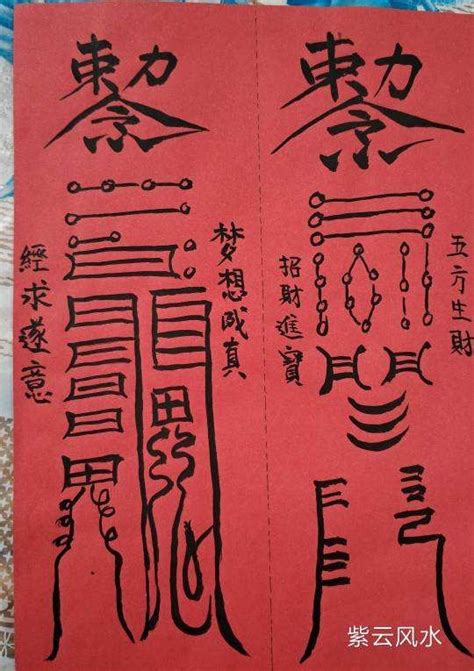 勅令
五方生財
招財進寶
勅令
梦想成真
經求遂意
紫云风水